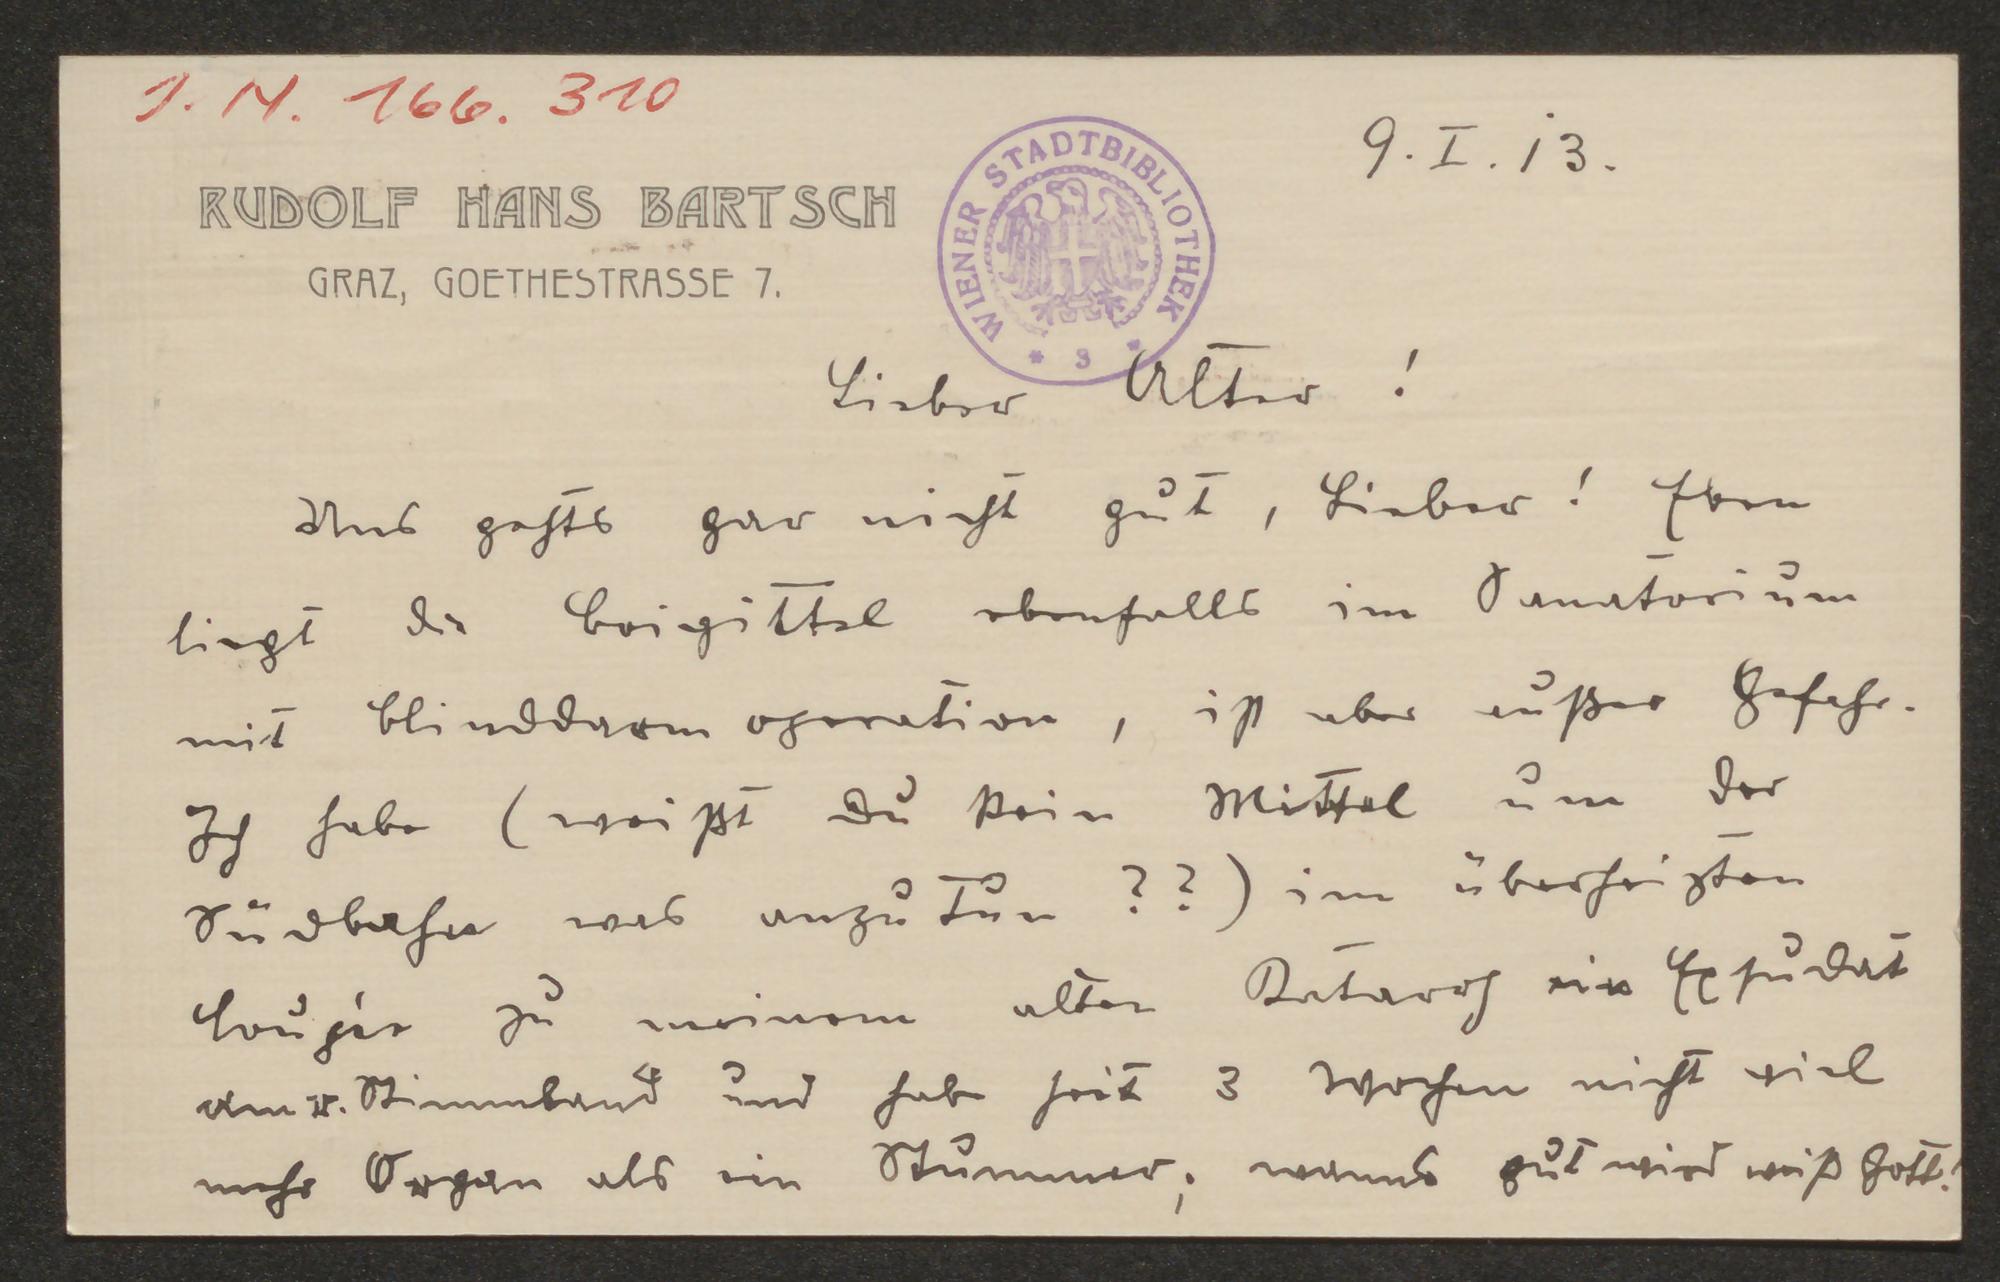 J. N. 166. 310
9. I. 13.
RUDOLF HANS BARTSCH
GRAZ, GOETHESTRASSE 7.
WIENER STADTBIBLIOTHEK
* 3 *
Lieber Alter!
Uns gehts gar nicht gut, Lieber! Eben
liegt die Brigittel ebenfalls im Sanatorium
mit Blinddarmoperation, ist aber außer Gefahr.
Ich habe (weißt du kein Mittel um der
Südbahn was anzutun??) im überheizten
Coupée zu meinem alten Katarrh ein Exsudat
am r. Stimmband und habe seit 3 Wochen nicht viel
mehr Organ als ein Stummer; wanns gut wird weiß Gott!